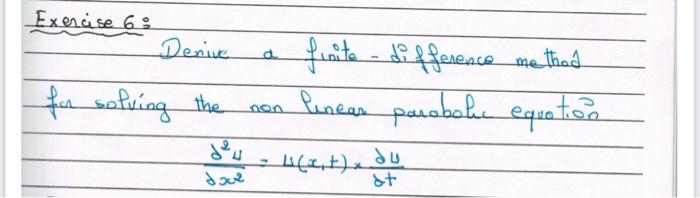 Exercise 6:
Derive a finite-difference method
for solving the non linear parabolic equation
∂²U/∂x² = U(x,t) × ∂U/∂t